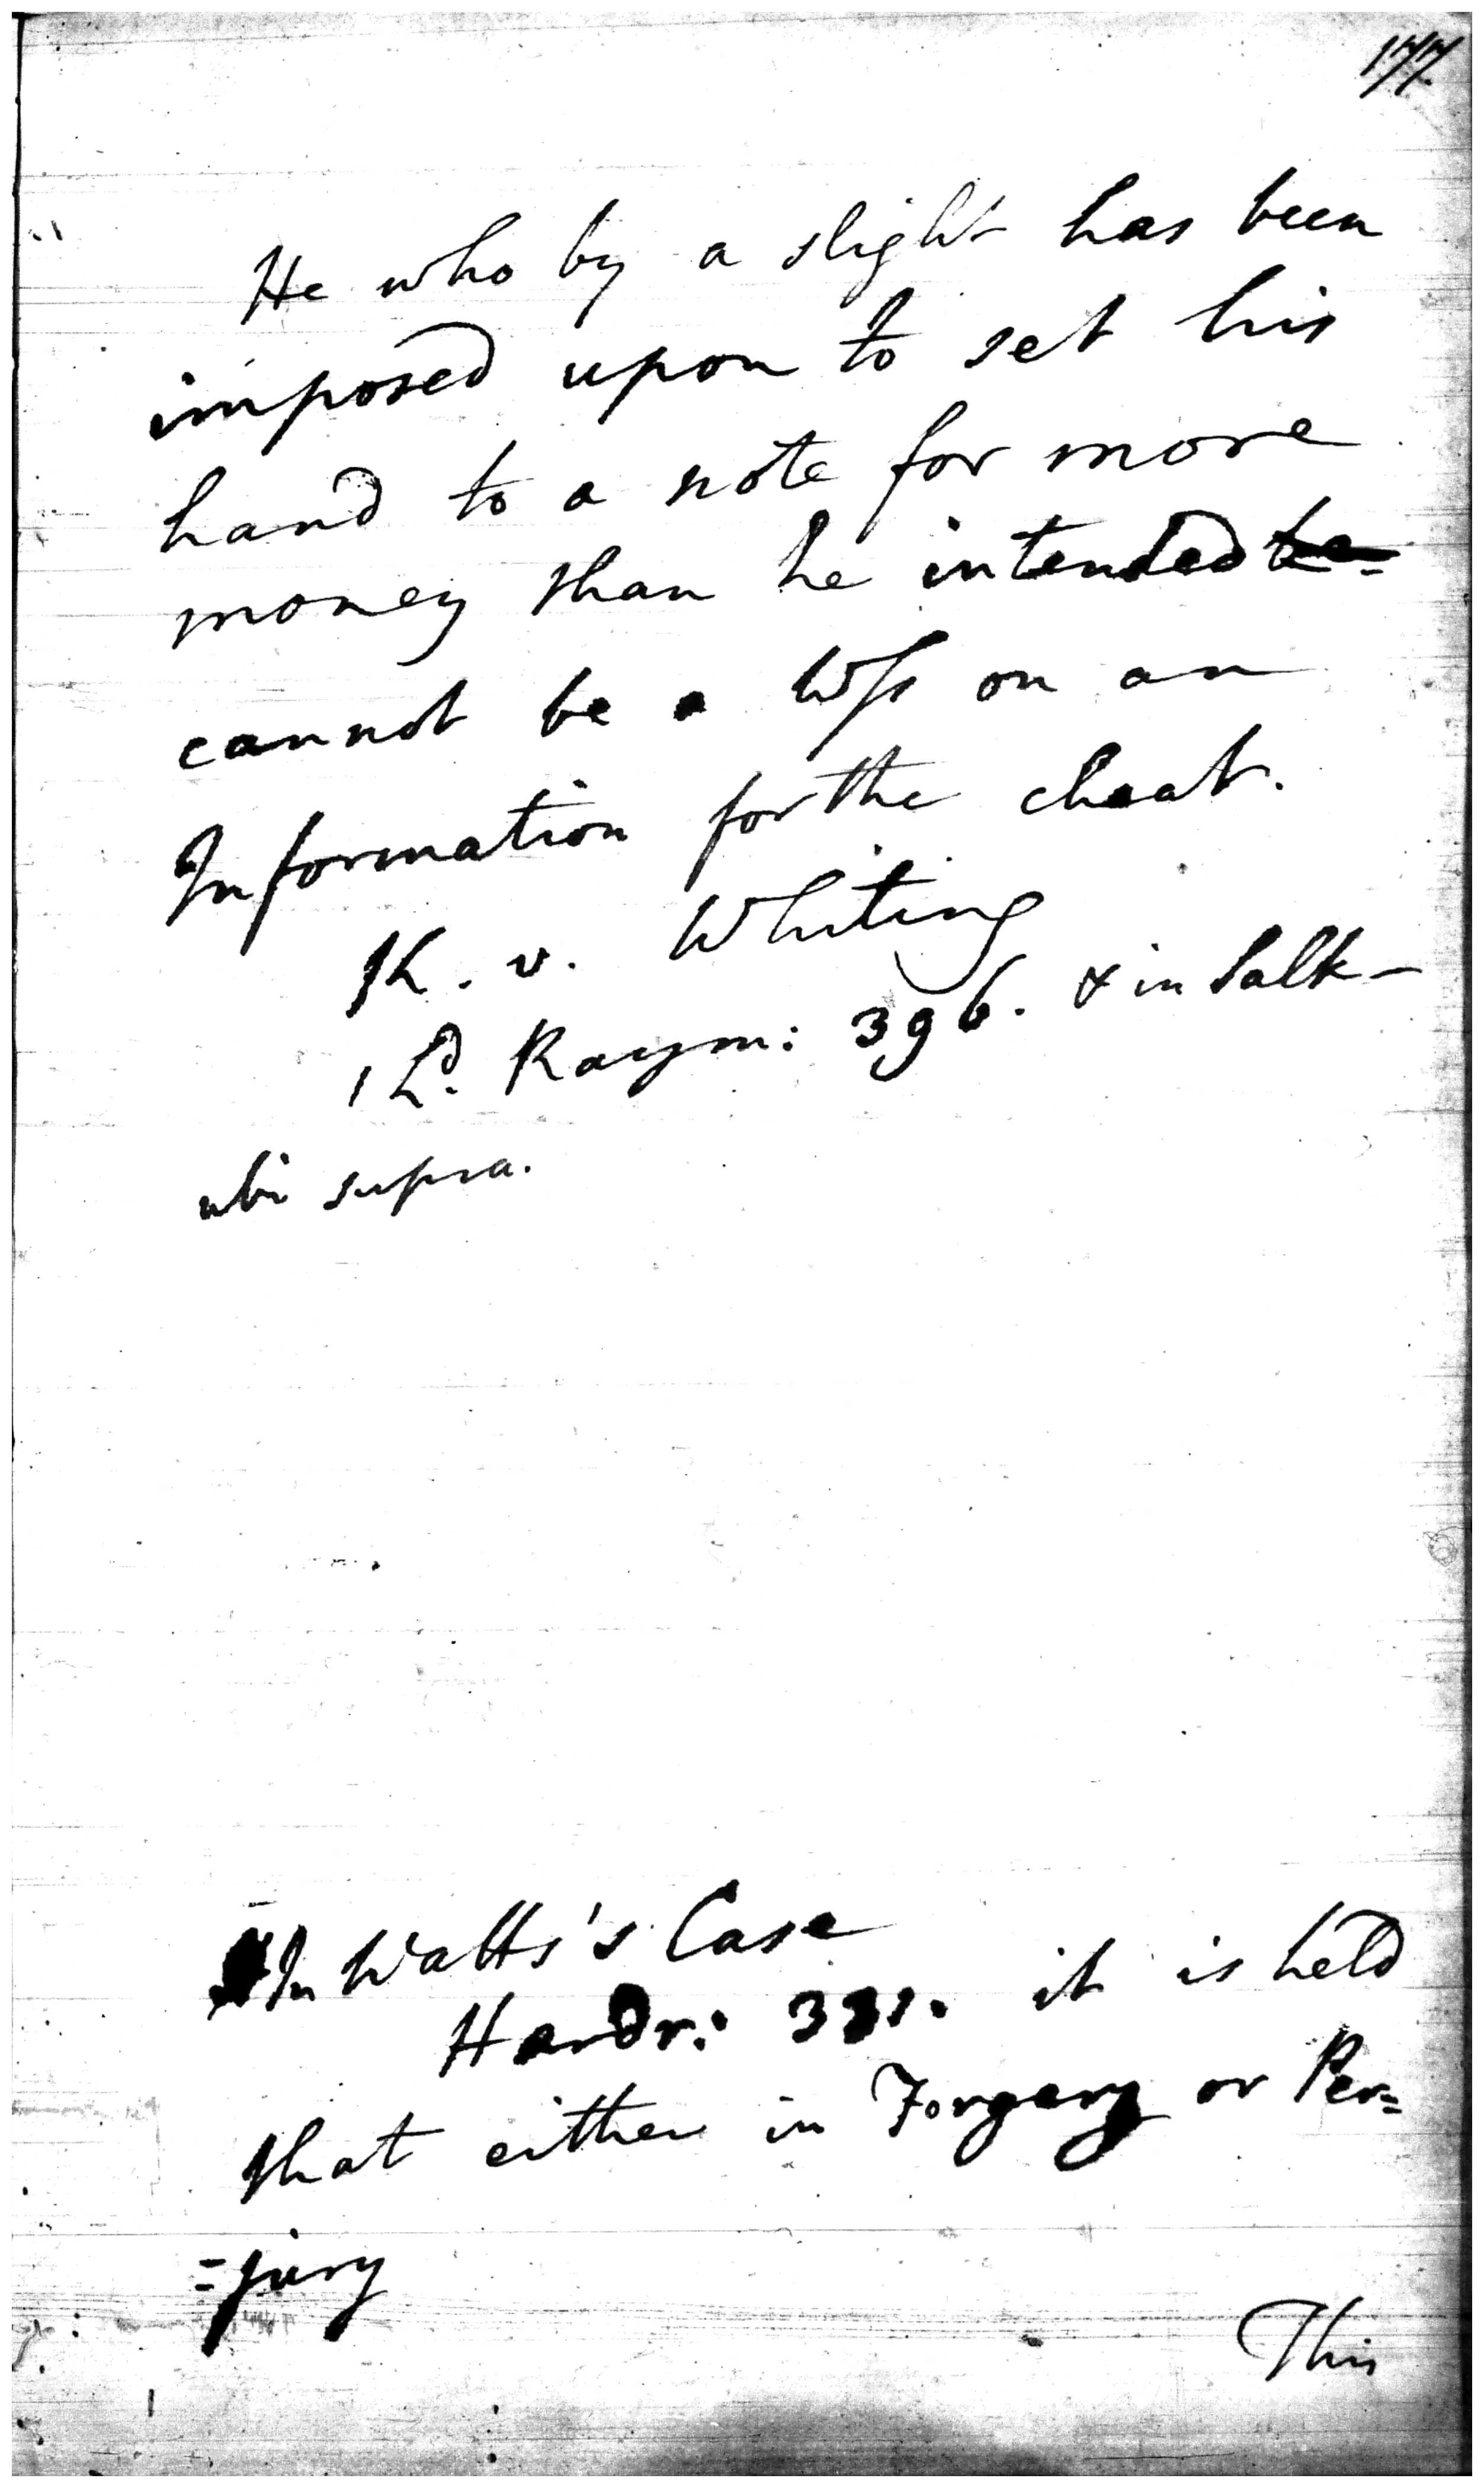 177
He who by a slight has been
imposed upon to set his
hand to a note for more
money than he intended
cannot be a Wss on an
Information for the cheat.
K. v. Whiting
1 Ld. Raym: 396. & in Salk-
ubi supra.
In Watts's Case
Hardr: 331. it is held
that either in Forgery or Per=
=jury
This